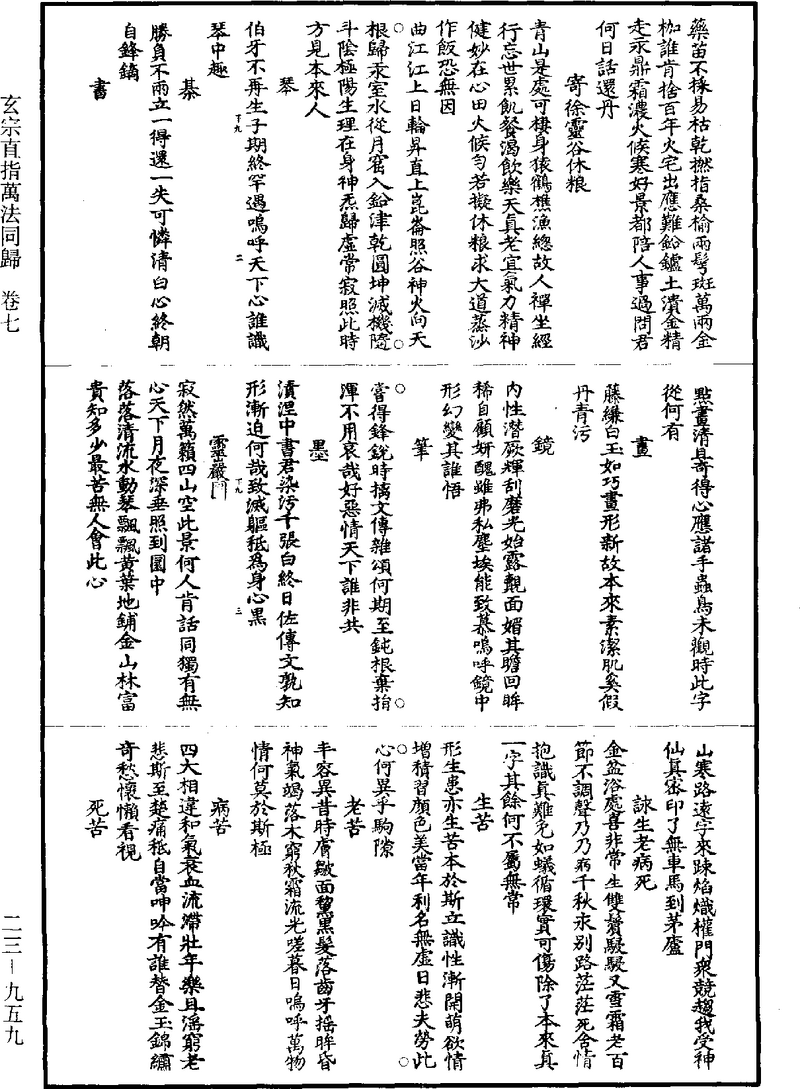 藥苗不採易枯乾撫楷桑榆兩髩斑萬兩金
枷誰肯捨百年火宅出應難鈆鑪土潰金精
走汞鼎霜濃火候寒好景都陪人事過問君
何日話還丹
寄徐靈谷休粮
青山是處可棲身猿鶴樵漁總故人禪坐經
行忘世累飢餐渴飲樂天真老宜氣力精神
健妙在心田火候勻若擬休粮求大道蒸沙
作飯恐無因
曲江江上日輪昇直上崑崙照谷神火向天
根歸汞室水從月窟入鉛津乾圓坤滅機隨
斗陰極陽生理在身神炁歸虛常寂照此時
方見本來人
琴
伯牙不再生子期終罕遇嗚呼天下心誰識
琴中趣
棊
勝負不兩立一得還一失可憐清白心終朝
自鋒鏑
書
點畫清且奇得心應諸手蟲鳥未觀時此字
從何有
畫
藤縑白玉如巧畫形新故本來素潔肌奚假
丹青污
鏡
內性潛厥輝刮磨光始露覿面媚其瞻回眸
稀自顧妍醜雖弗私塵埃能致慕嗚呼鏡中
形幻變其誰悟
筆
當得鋒銳時摛文傳雜頌何期至鈍根棄捐
渾不用哀哉好惡情天下誰非共
墨
漬涅中書君染污千張白終日佐傳文孰知
形漸迫何哉致滅軀秪為身心黑
靈巖
寂然萬籟四山空此景何人肯話同獨有無
心天下月夜深垂照到圜中
落落清流水動琴飄飄黃葉地鋪金山林富
貴知多少最苦無人會此心
山寒路遠字來踈焰熾權門衆競趨我受神
仙真密印了無車馬到茅廬
詠生老病死
金盆浴處喜非常生雙鬢駸駸又雪霜老百
節不調聲乃乃病千秋永別路茫茫死含情
抱識真難免如蟻循環實可傷除了本來真
一字其餘何不屬無常
生苦
形生患亦生苦本於斯立識性漸開萌欲情
增積習顏色美當年利名無虛日悲夫勞此
心何異乎駒隙
老苦
丰容異昔時膚皺面黧黑髮落齒牙搖眸昏
神氣竭落木窮秋霜流光嗟暮日嗚呼萬物
情何莫於斯極
病苦
四大相違和氣衰血流滯壯年樂且滛窮老
悲斯至楚痛秪自當呻吟有誰替金玉錦繡
奇愁懷懶看視
死苦
玄宗直指萬法同歸 卷七
二三－九五九